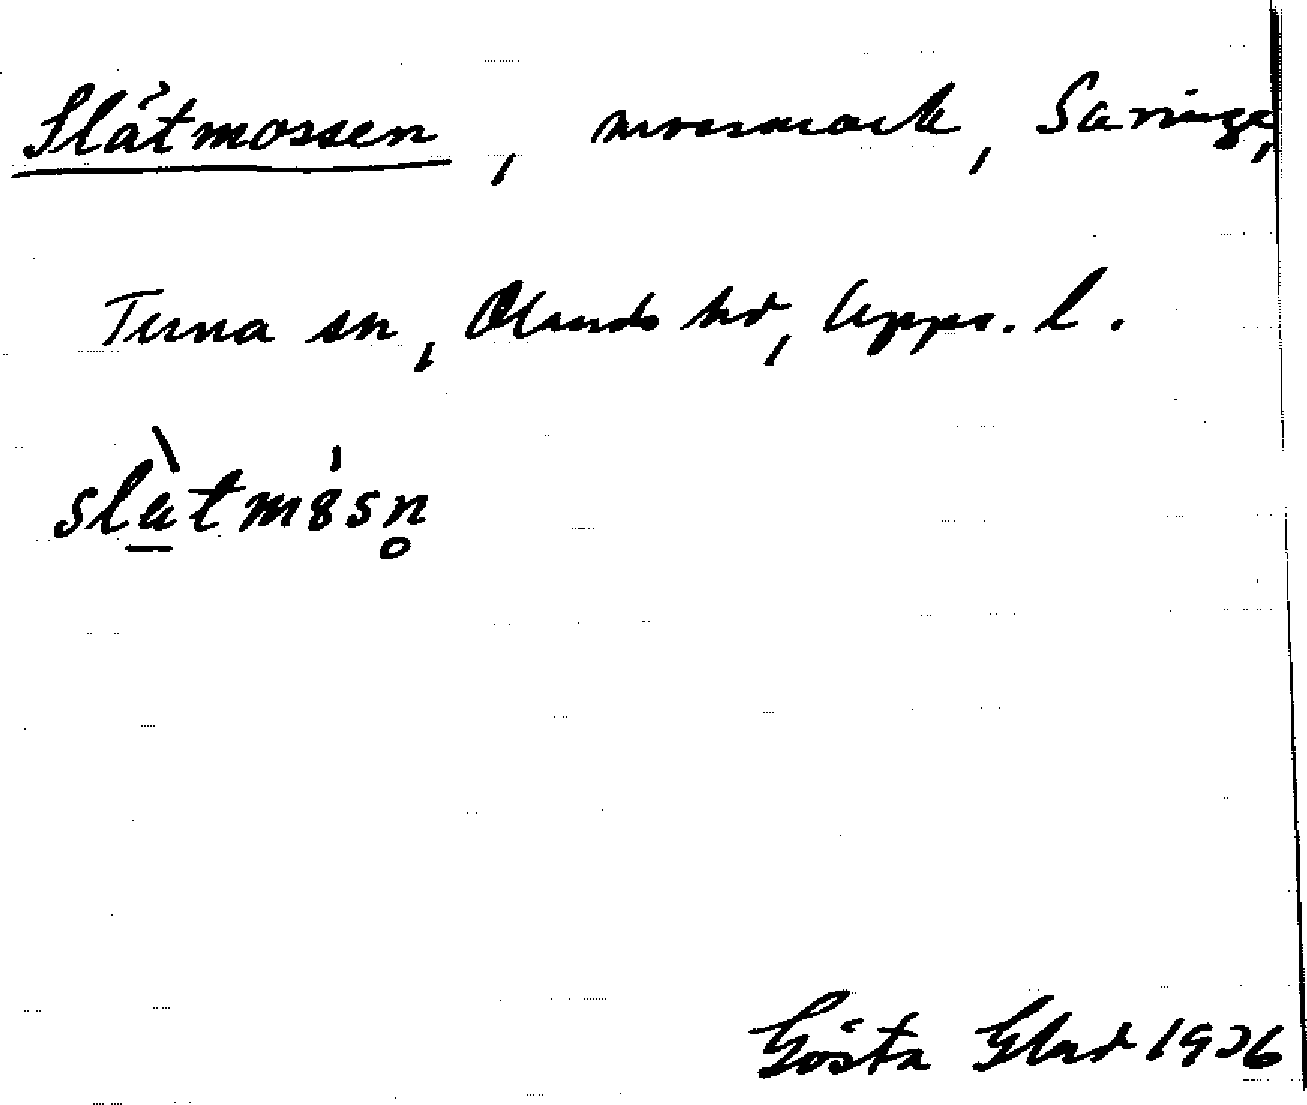 Slåtmossen, mossmark, Savinge,
Tuna sn, Olands hd, Upps. l.
slàtm8sn̥
Gösta Glad 1926